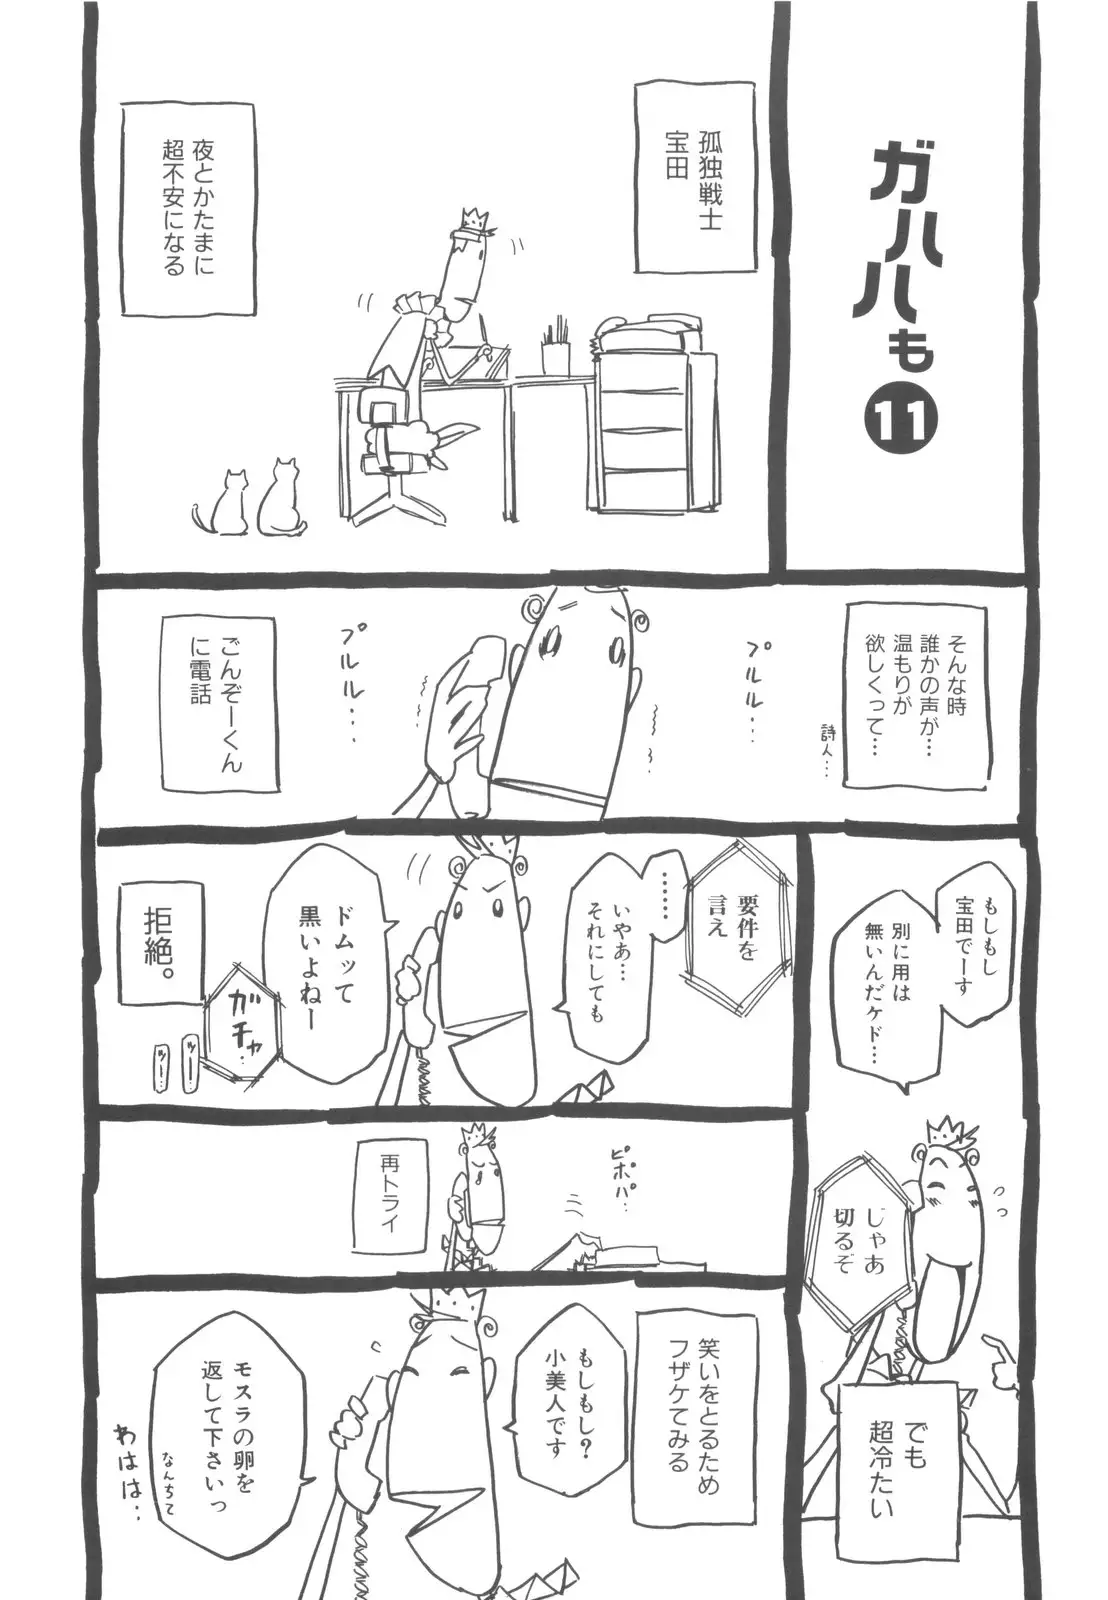 ガハハも⑪
孤独戦士
宝田
夜とかたまに
超不安になる
そんな時
誰かの声が…
温もりが
欲しくって…
詩人…
プルルル…
プルルル…
ごんぞーくん
に電話
もしもし
宝田でーす
別に用は
無いんだケド…
じゃあ
切るぞ
でも
超冷たい
要件を
言え
……
いやあ…
それにしても
ドムッて
黒いよねー
ガチャ
ツー
ツー
拒絶。
ピポパ…
再トライ
笑いをとるため
フザケてみる
もしもし?
小美人です
モスラの卵を
返して下さいっ
なんちて
わはは…